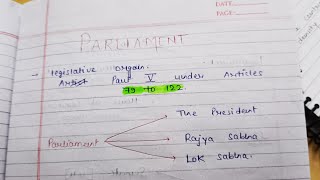 DATE
PAGE
PARLIAMENT
→ legislative organ.
Part V under Articles
79 to 122.
The President
Parliament
Rajya Sabha
Lok Sabha.